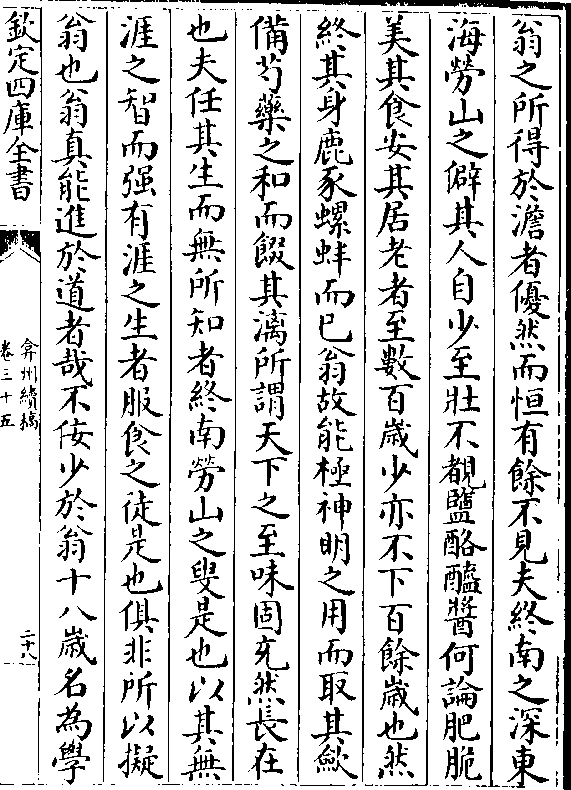 翁之所得於澹者優然而恒有餘不見夫終南之深東
海勞山之僻其人自少至壯不覩鹽酪醯醬何論肥脆
美其食安其居老者至數百歲少亦不下百餘歲也然
終其身鹿豕螺蚌而已翁故能極神明之用而取其歛
備芍藥之和而餟其漓所謂天下之至味固充然長在
也夫任其生而無所知者終南勞山之叟是也以其無
涯之智而强有涯之生者服食之徒是也俱非所以擬
翁也翁真能進於道者哉不佞少於翁十八歲名為學
欽定四庫全書
弇州續稿
卷三十五
二十八